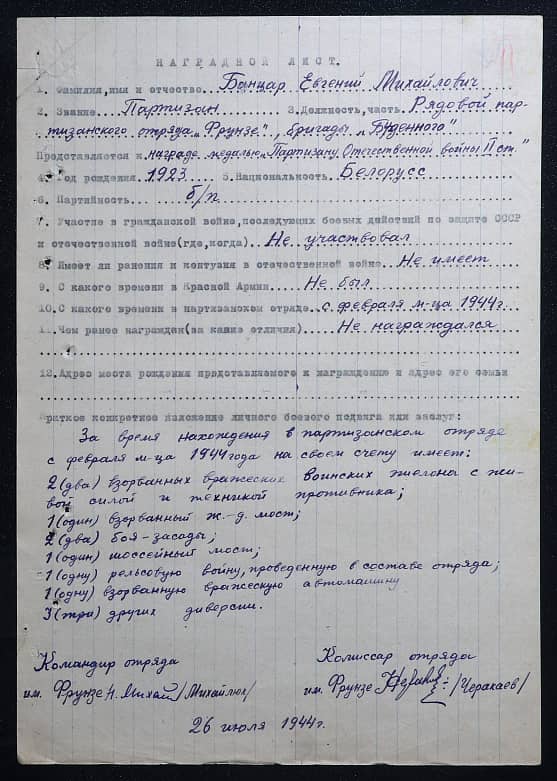 НАГРАДНОЙ ЛИСТ.
1. Фамилия,имя и отчество..Банцар Евгений Михайлович
2. Звание...Партизан 3.Должность,часть.Рядовой пар-
тизанского отряда „Фрунзе", бригады „Буденного"
Представляется к награде медалью „Партизану Отечественной войны II ст."
4. Год рождения.1923 5.Национальность.Белорусс
6. Партийность....б/п
7. Участие в гражданской войне,последующих боевых действий по защите СССР
и отечественной войне(где,когда)..Не участвовал
8. Имеет ли ранения и контузия в отечественной войне..Не имеет
9. С какого времени в Красной Армии....Не был
10. С какого времени в партизанском отряде..с февраля м-ца 1944г.
11.Чем ранее награжден(за какие отличия)...Не награждался
12.Адрес места рождения представляемого к награждению и адрес его семьи
Краткое конкретное изложение личного боевого подвига или заслуг:
За время нахождения в партизанском отряде
с февраля м-ца 1944 года на своем счету имеет:
2 (два) взорванных вражеских воинских эшелона с жи-
вой силой и техникой противника;
1 (один) взорванный ж.-д. мост;
2 (два) боя-засады;
1 (один) шоссейный мост;
1 (одну) рельсовую войну, проведенную в составе отряда;
1 (одну) взорванную вражескую автомашину
3 (три) других диверсии.
Командир отряда Комиссар отряда
им. Фрунзе /Михайлюк/ им. Фрунзе /Черакаев/
26 июля 1944г.